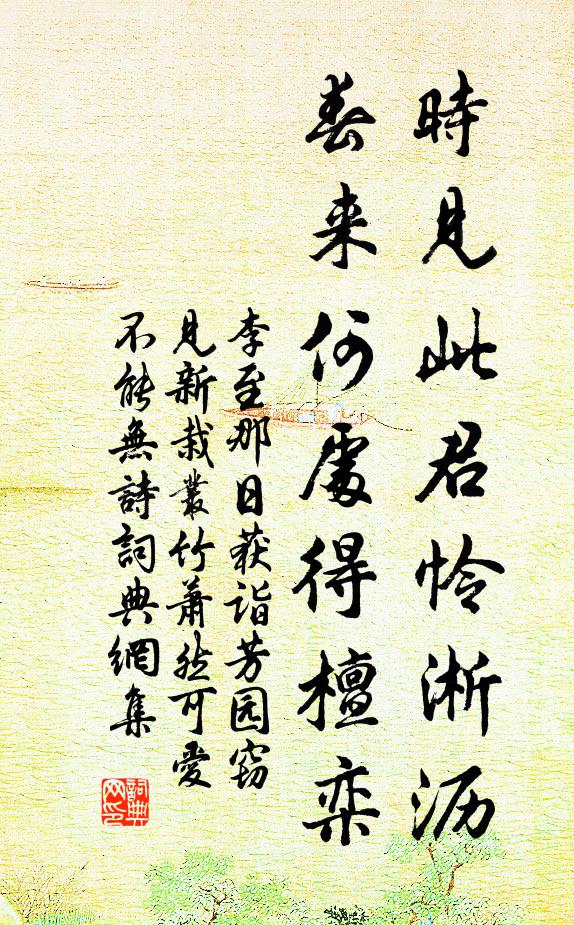 時見此君怜淅沥
春来何處得檀栾
李至那日获诣芳园窃
見新栽叢竹萧然可愛
不能無詩詞典網集
詞典
网印